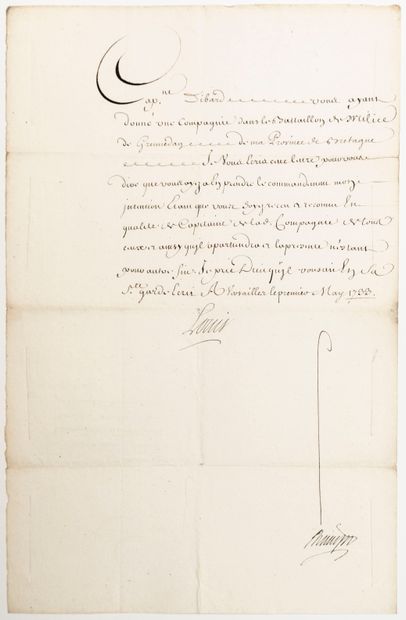 Cap.ne Dibard vous ayant
donné une Compagnie dans le Battaillon de Milice
de Gremedan de ma Province de Bretagne
Je Vous Ecris cette lettre pour vous
dire que vous ayez a En prendre le commandement mon
intention Etant que vous soyez receu et reconnu En
qualité de Capitaine de lad. Compagnie de tous
ceux et ainsy qu'il apartiendra Et la presente n'Estant
pour autre fin Je prie Dieu qu'il vous ait En sa
S.te garde Ecrit A Versailles le premier May 1733.
Louis